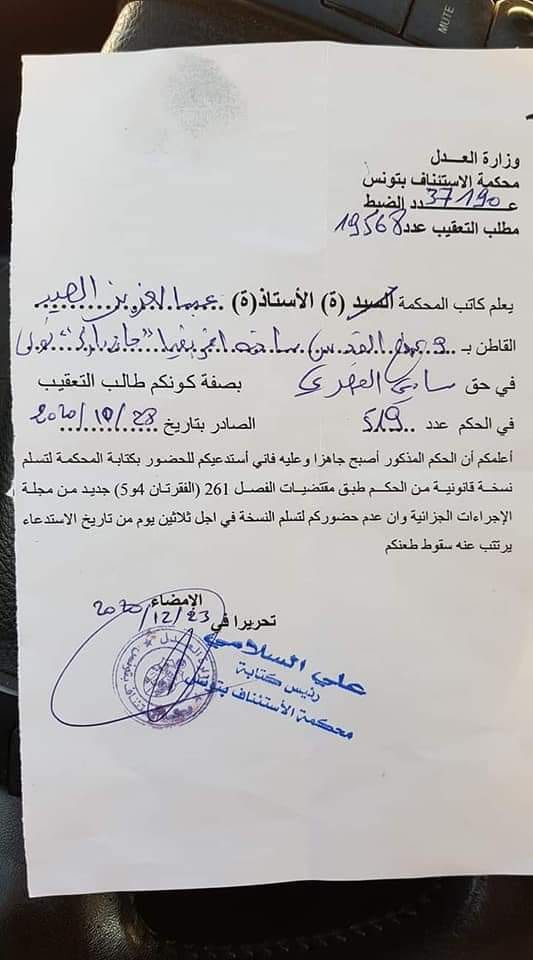 MUTE
وزارة العـــدل
محكمة الاستئناف بتونس
عـــ37190ــدد الضبط
مطلب التعقيب عدد 19568
يعلم كاتب المحكمة السيد (ة) الأستاذ(ة) عبد العزيز الصيد
القاطن بـ 9 نهج القدس ساحة افريقيا
في حق سامي بصفة كونكم طالب التعقيب
في الحكم عدد 519 الصادر بتاريخ 2020/10/28
أعلمكم أن الحكم المذكور أصبح جاهزا وعليه فاني أستدعيكم للحضور بكتابة المحكمة لتسلم
نسخة قانونية من الحكم طبق مقتضيات الفصل 261 (الفقرتان 4و5) جديد من مجلة
الإجراءات الجزائية وان عدم حضوركم لتسلم النسخة في اجل ثلاثين يوم من تاريخ الاستدعاء
يرتتب عنه سقوط طعنكم
تحريرا في 2020/12/23
الإمضاء
علي السلامي
رئيس كتابة
محكمة الأستئناف بتونس